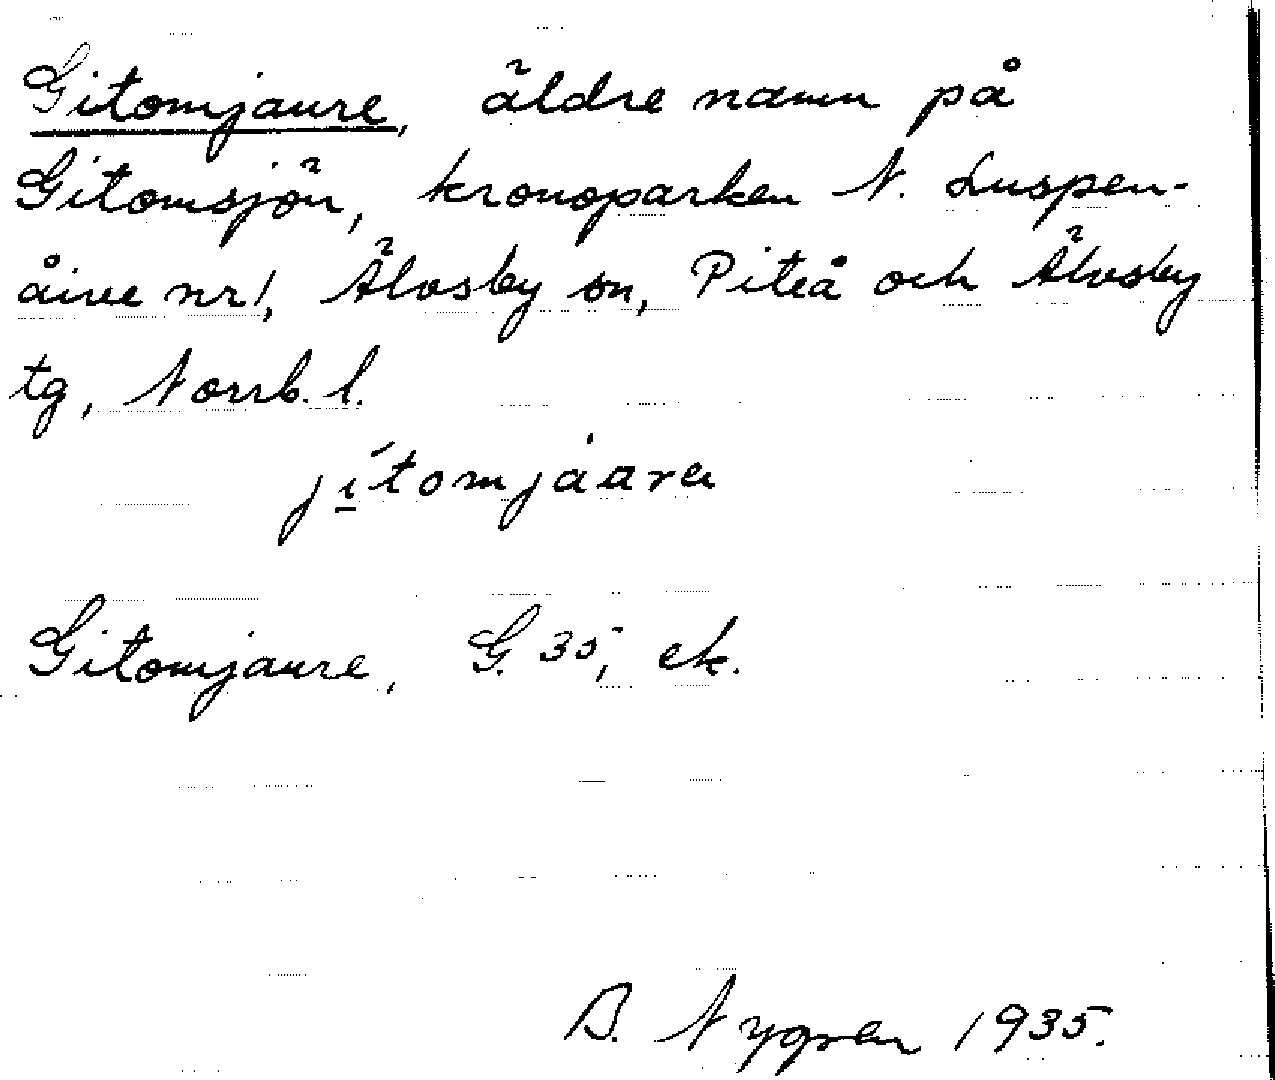 Gitomjaure, äldre namn på
Gitomsjön, kronoparken N. Luspen-
åive nr 1, Älvsby sn, Piteå och Älvsby
tg, Norrb. l.
jítomjàara
Gitomjaure, G. 35, ek.
B. Nygren 1935.